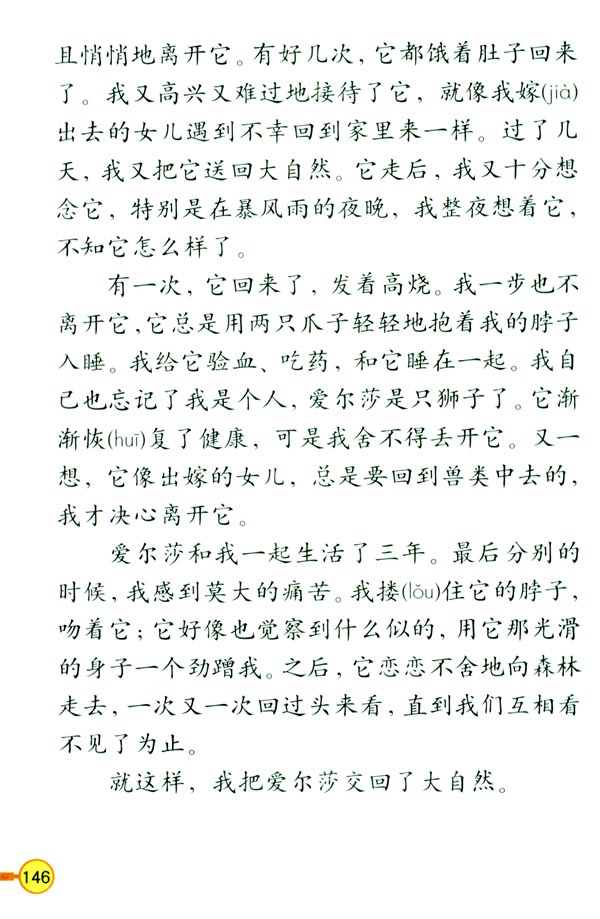 且悄悄地离开它。有好几次，它都饿着肚子回来
了。我又高兴又难过地接待了它，就像我嫁(jià)
出去的女儿遇到不幸回到家里来一样。过了几
天，我又把它送回大自然。它走后，我又十分想
念它，特别是在暴风雨的夜晚，我整夜想着它，
不知它怎么样了。
有一次，它回来了，发着高烧。我一步也不
离开它，它总是用两只爪子轻轻地抱着我的脖子
入睡。我给它验血、吃药，和它睡在一起。我自
己也忘记了我是个人，爱尔莎是只狮子了。它渐
渐恢(huī)复了健康，可是我舍不得丢开它。又一
想，它像出嫁的女儿，总是要回到兽类中去的，
我才决心离开它。
爱尔莎和我一起生活了三年。最后分别的
时候，我感到莫大的痛苦。我搂(lǒu)住它的脖子，
吻着它；它好像也觉察到什么似的，用它那光滑
的身子一个劲蹭我。之后，它恋恋不舍地向森林
走去，一次又一次回过头来看，直到我们互相看
不见了为止。
就这样，我把爱尔莎交回了大自然。
146